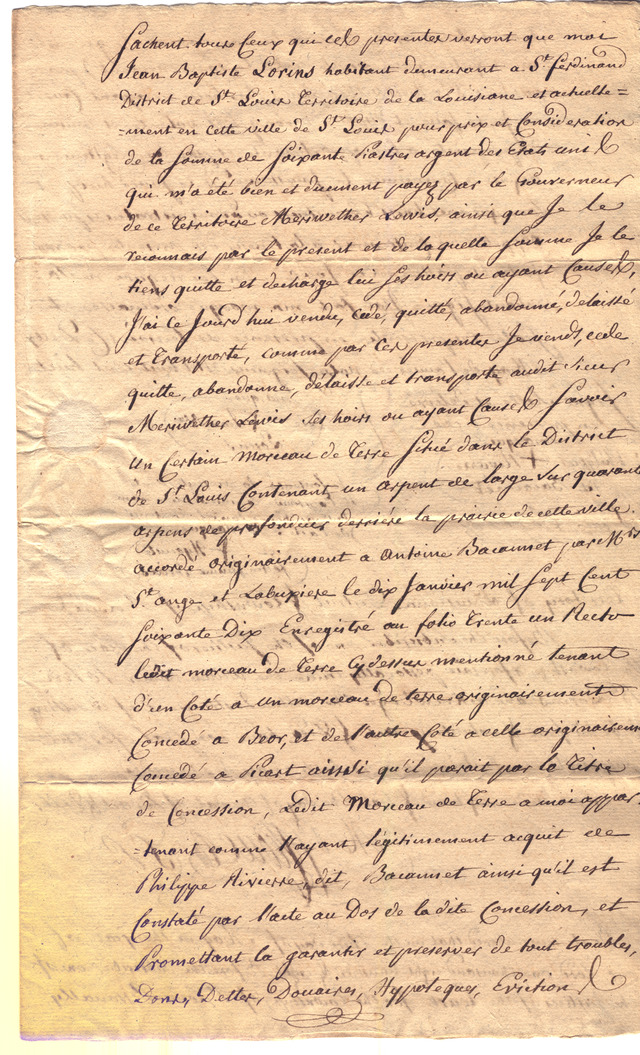 Sachent tous Ceux qui ces presentes verront que moi
Jean Baptiste Lorins habitant demeurant a St. Ferdinand
District de St. Louis Territoire de la Louisiane et actuelle=
=ment en cette ville de St. Louis pour prix et Consideration
de la Somme de Soixante Piastres argent des Etats unis
qui m'a été bien et duement payez par le Gouverneur
de ce Territoire Meriwether Lewis, ainsi que Je le
reconnais par le present et de laquelle Somme Je le
tiens quitte et decharge lui Ses hoirs ou ayant Causes,
J'ai ce Jourd'hui vendu, cedé, quitté, abandonné, delaissé
et Transporté, comme par ces presentes Je vends, cede
quitte, abandonne, délaisse et transporte audit Sieur
Meriwether Lewis Ses hoirs ou ayant Causes Savoir
un Certain Morceau de Terre Situé dans le District
de St. Louis Contenant un arpent de large Sur quarante
arpens de profondeur derriére la prairie de cette ville.
accordé originairement a Antoine Bacannet par Mrs
St. ange et Labuxiere le dix Janvier mil Sept Cent
Soixante Dix Enregistré au folio Trente un Recto
ledit morceau de Terre Cy dessus mentionné tenant
d'un Coté a un morceau de terre originairement
Concedé a Beor, et de l'autre Coté a celle originairem
Concedé a Picart ainsi qu'il parait par le Titre
de Concession, Ledit Morceau de Terre a moi appar
=tenant comme l'ayant légitimement acquit de
Philippe Rivierre, dit, Bacannet ainsi qu'il est
Constaté par l'acte au Dos de la dite Concession, et
Promettant la garantir et preserver de tout troubles,
Dons, Dettes, Douaires, Hypoteques, Eviction